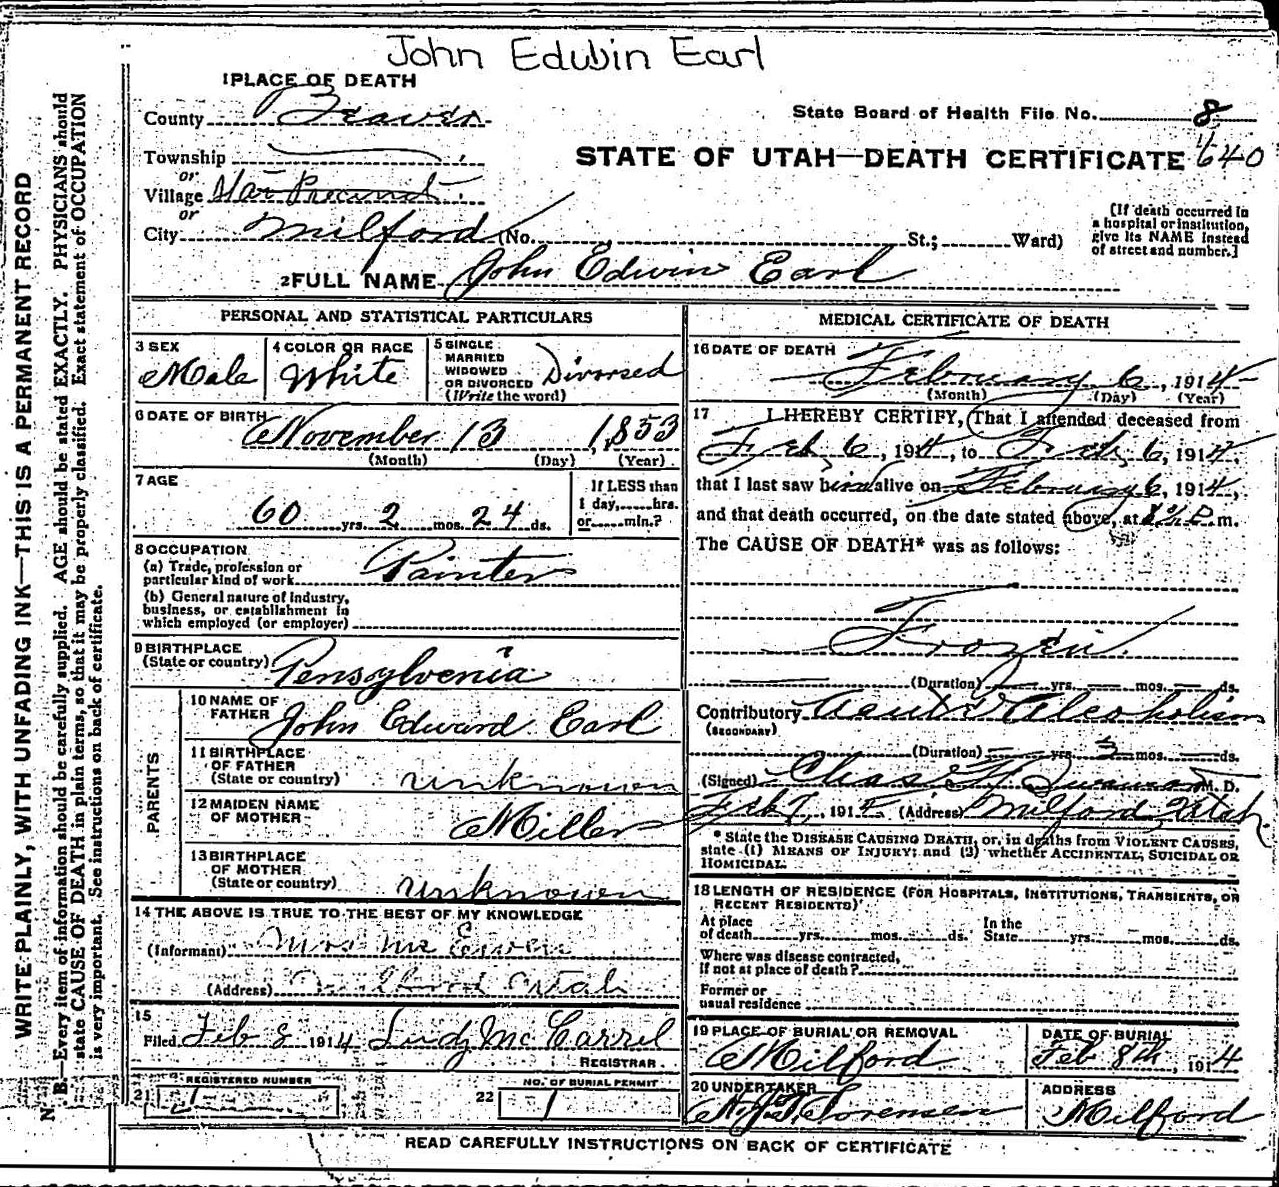 John Edwin Earl
1 PLACE OF DEATH
County Beaver
State Board of Health File No. 8
Township
STATE OF UTAH—DEATH CERTIFICATE 640
or
Village Star Precinct
or
City Milford (No. St.; Ward)
[If death occurred in
a hospital or institution,
give its NAME instead
of street and number.]
2 FULL NAME John Edwin Earl
PERSONAL AND STATISTICAL PARTICULARS
3 SEX
Male
4 COLOR OR RACE
White
5 SINGLE
MARRIED
WIDOWED
OR DIVORCED
(Write the word)
Divorsed
6 DATE OF BIRTH
November 13 1,853
(Month) (Day) (Year)
7 AGE
60 yrs. 2 mos. 24 ds.
If LESS than
1 day, hrs.
or min.?
8 OCCUPATION
(a) Trade, profession or
particular kind of work Painter
(b) General nature of industry,
business, or establishment in
which employed (or employer)
9 BIRTHPLACE
(State or country) Pensylvenia
PARENTS
10 NAME OF
FATHER John Edward Earl
11 BIRTHPLACE
OF FATHER
(State or country) unknown
12 MAIDEN NAME
OF MOTHER Miller
13 BIRTHPLACE
OF MOTHER
(State or country) unknown
14 THE ABOVE IS TRUE TO THE BEST OF MY KNOWLEDGE
(Informant) Mrs Mc Ewen
(Address) Utah
15
Filed Feb 8 1914 Mc Carrel
REGISTRAR
21 REGISTERED NUMBER
1
22 NO. OF BURIAL PERMIT
1
MEDICAL CERTIFICATE OF DEATH
16 DATE OF DEATH
February 6, 1914
(Month) (Day) (Year)
17 I HEREBY CERTIFY, That I attended deceased from
Feb 6, 1914, to Feb. 6, 1914,
that I last saw him alive on February 6, 1914,
and that death occurred, on the date stated above, at P. m.
The CAUSE OF DEATH* was as follows:
Frozen.
(Duration) yrs. mos. ds.
Contributory Acute Alcoholism
(SECONDARY)
(Duration) yrs. 3 mos. ds.
(Signed) Chas M. D.
Feb 7, 1914 (Address) Milford Utah.
* State the DISEASE CAUSING DEATH, or, in deaths from VIOLENT CAUSES,
state (1) MEANS OF INJURY; and (2) whether ACCIDENTAL, SUICIDAL OR
HOMICIDAL.
18 LENGTH OF RESIDENCE (FOR HOSPITALS, INSTITUTIONS, TRANSIENTS, OR
RECENT RESIDENTS)
At place
of death yrs. mos. ds.
In the
State yrs. mos. ds.
Where was disease contracted,
if not at place of death?
Former or
usual residence
19 PLACE OF BURIAL OR REMOVAL
Milford
DATE OF BURIAL
Feb 8th, 1914
20 UNDERTAKER
Sorensen
ADDRESS
Milford
READ CAREFULLY INSTRUCTIONS ON BACK OF CERTIFICATE
WRITE PLAINLY, WITH UNFADING INK—THIS IS A PERMANENT RECORD
N. B.—Every item of information should be carefully supplied. AGE should be stated EXACTLY. PHYSICIANS should
state CAUSE OF DEATH in plain terms, so that it may be properly classified. Exact statement of OCCUPATION
is very important. See instructions on back of certificate.